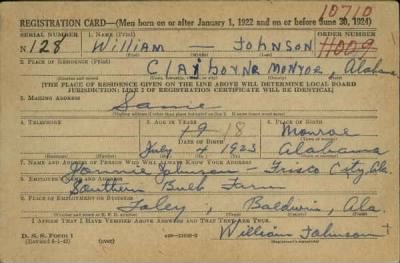 REGISTRATION CARD—(Men born on or after January 1, 1922 and on or before June 30, 1924)
10710
SERIAL NUMBER
1. NAME (Print)
ORDER NUMBER
N 128
William — Johnson
11009
2. PLACE OF RESIDENCE (Print)
Alabama
[THE PLACE OF RESIDENCE GIVEN ON THE LINE ABOVE WILL DETERMINE LOCAL BOARD
JURISDICTION; LINE 2 OF REGISTRATION CERTIFICATE WILL BE IDENTICAL]
3. MAILING ADDRESS
Same
4. TELEPHONE
5. AGE IN YEARS
6. PLACE OF BIRTH
19 18
Monroe
DATE OF BIRTH
July 4 1923
Alabama
7. NAME AND ADDRESS OF PERSON WHO WILL ALWAYS KNOW YOUR ADDRESS
Johnson — Frisco City, Ala.
8. EMPLOYER'S NAME AND ADDRESS
Southern Bulb Farm
9. PLACE OF EMPLOYMENT OR BUSINESS
Foley, Baldwin, Ala.
I AFFIRM THAT I HAVE VERIFIED ABOVE ANSWERS AND THAT THEY ARE TRUE.
D. S. S. Form 1
(over)
William Johnson